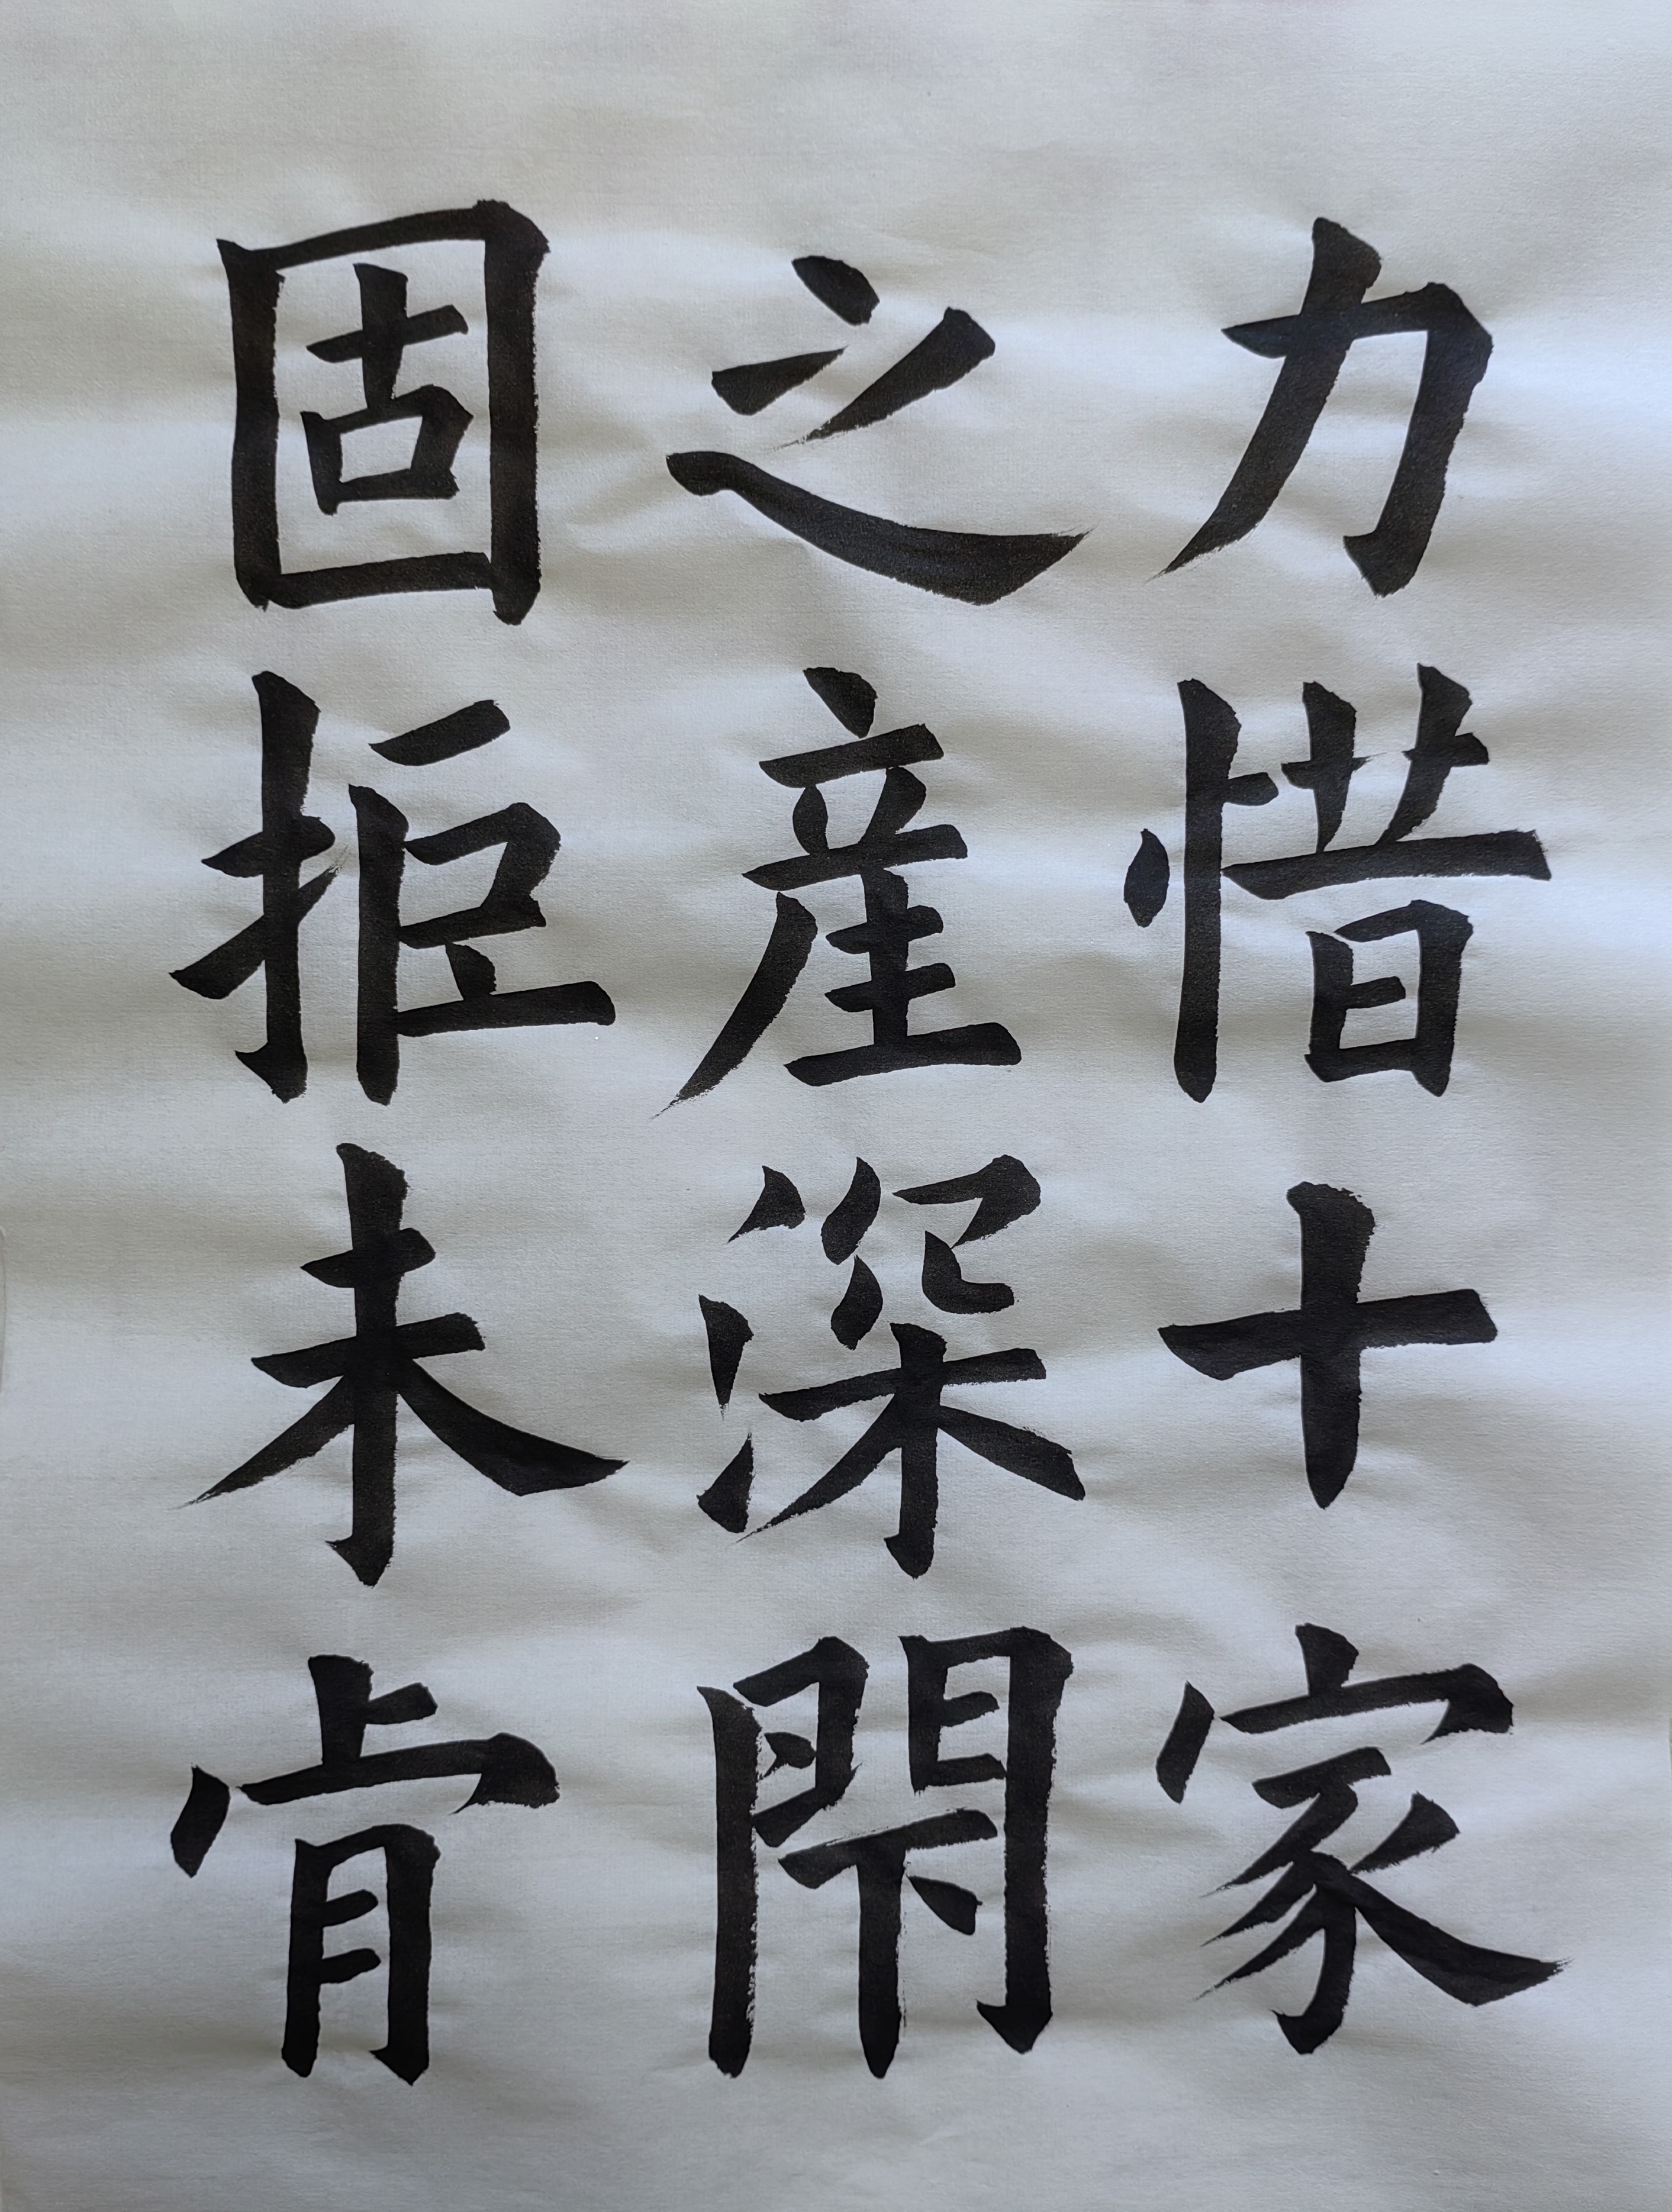 力惜十家
之産深閇
固拒未肯